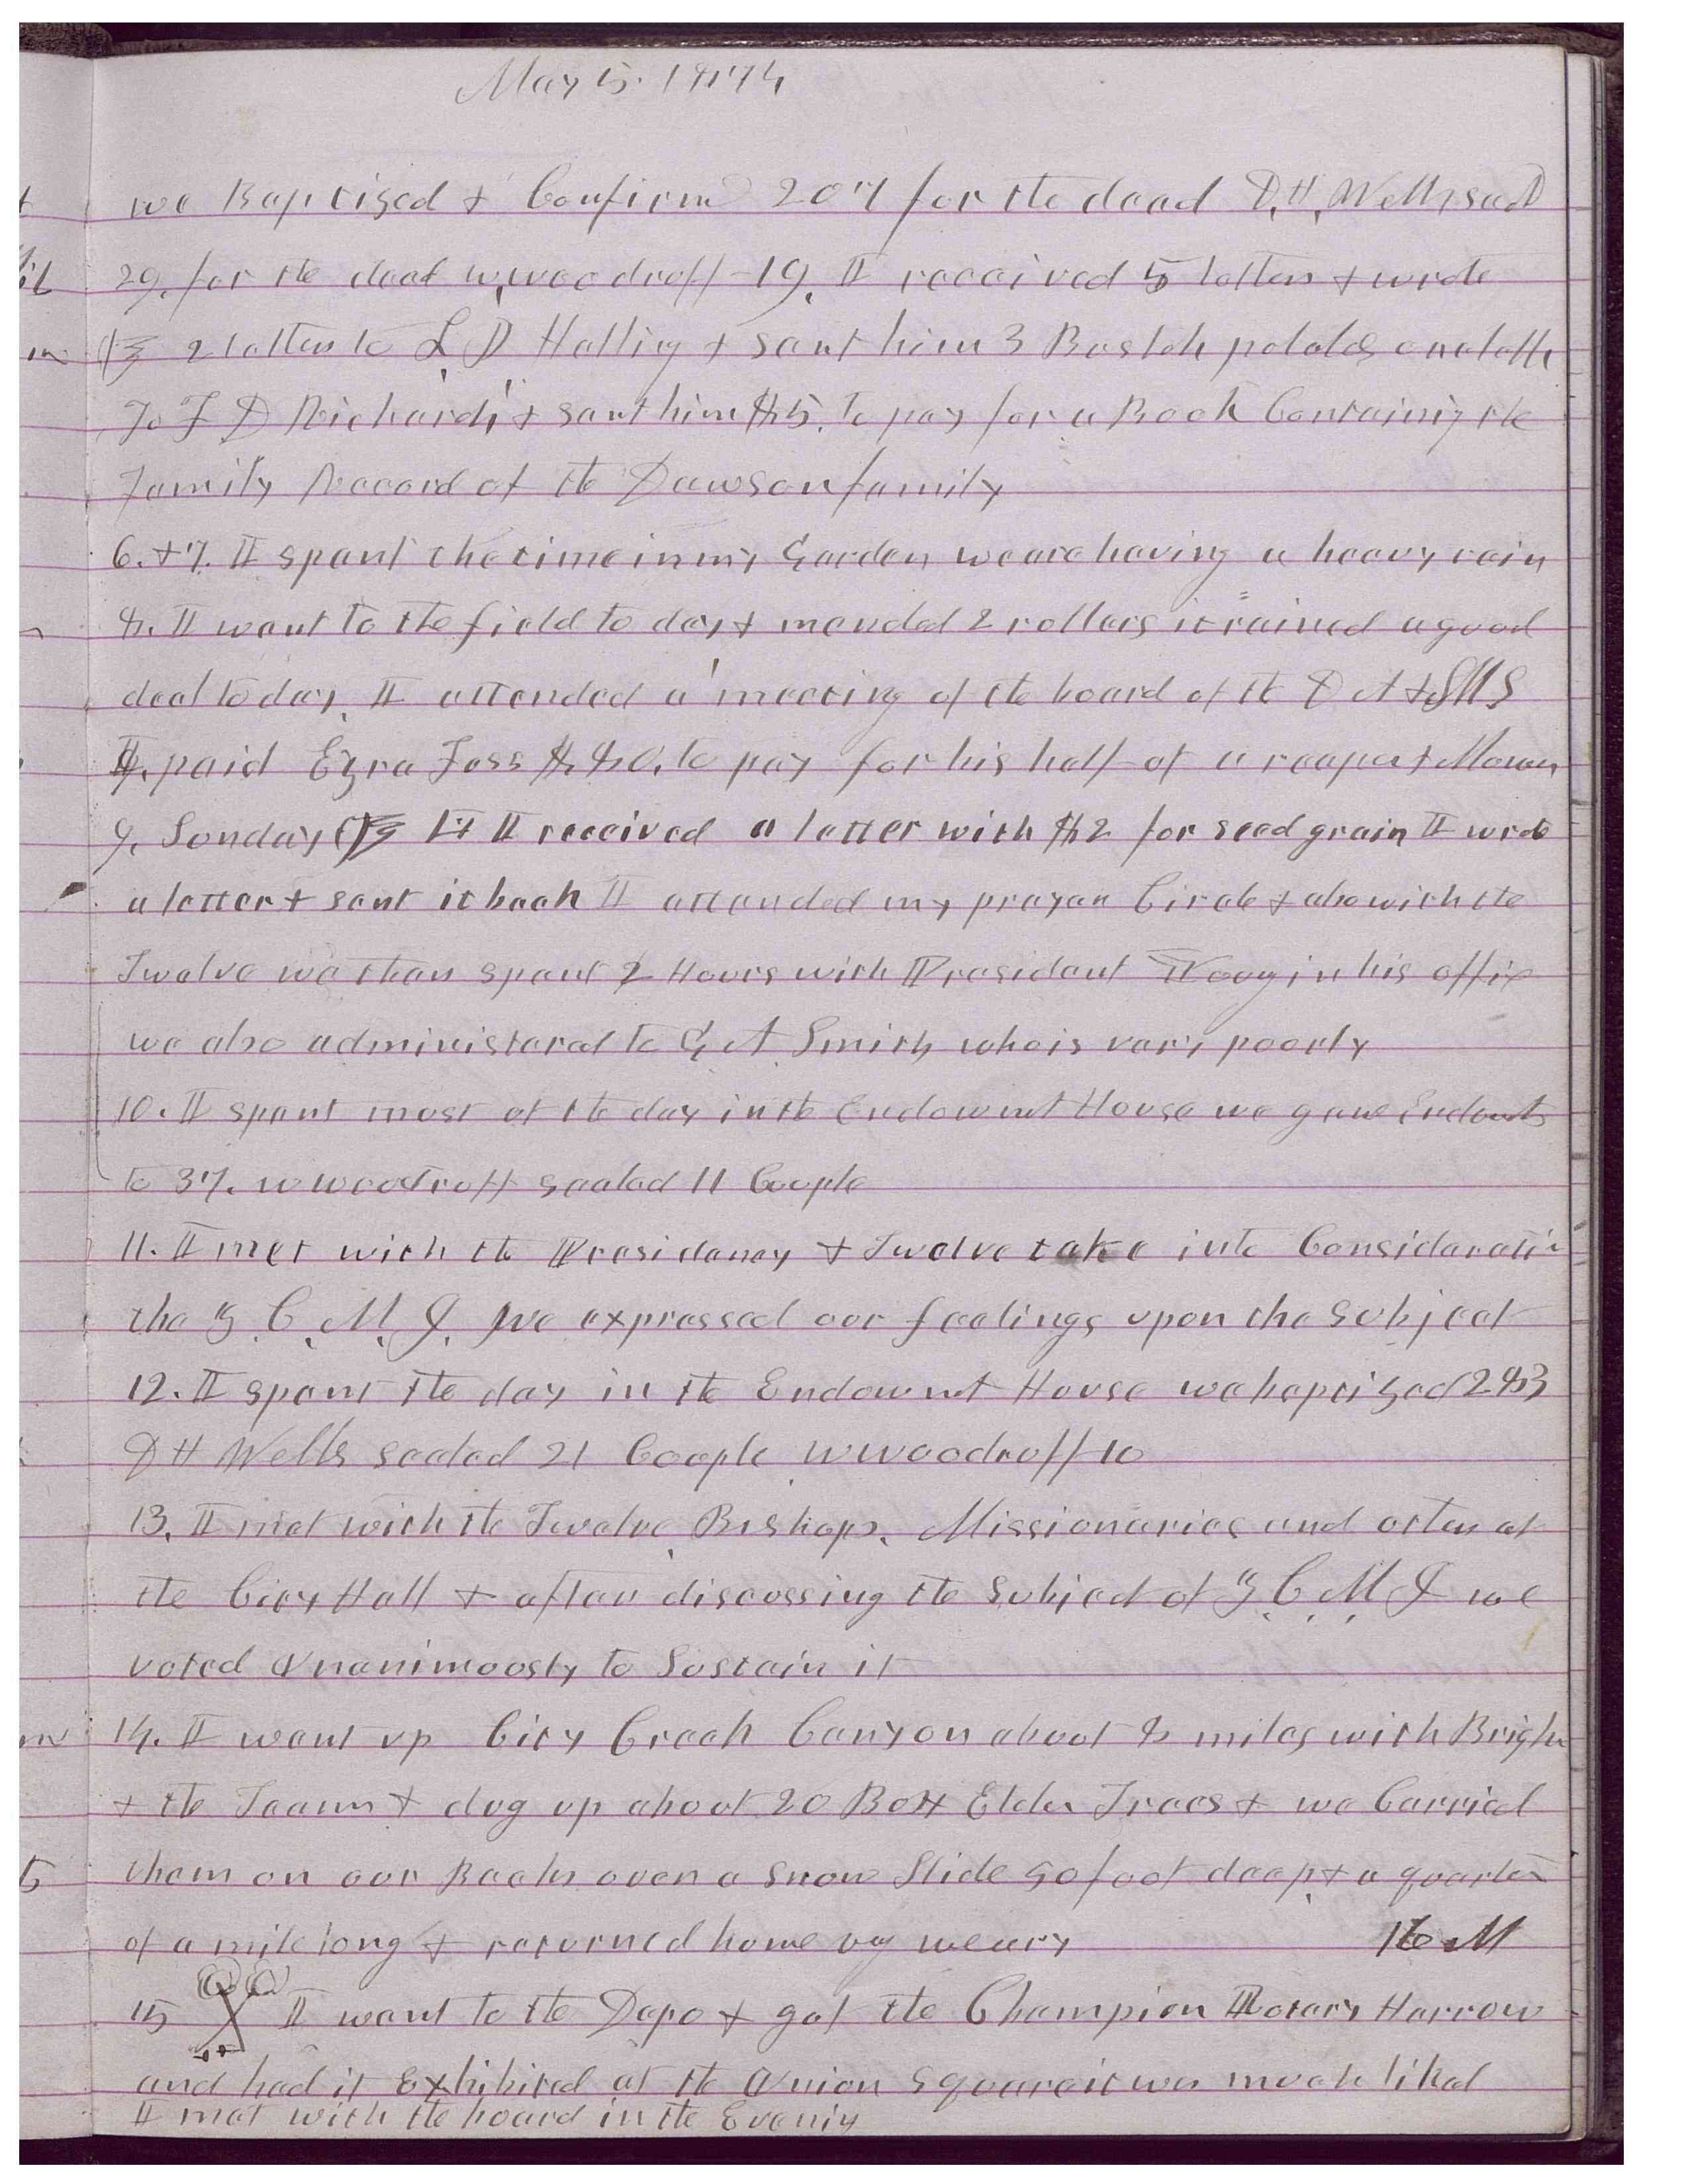 May 5. 1874
we Baptised & Confirmd 207 for the dead D. H. Wells
29, for the dead W, woodruff 19, I received 5 letters & wrote
2 letters to L, D Halling & sent him 3 Bushels potatoes one letter
To F D Richards & sent him $5, to pay for a Book Containing the
Family Record of the Dawson family
6. & 7. I spent the time in my Garden we are having a heavy rain
8. I went to the field to day & mended 2 rollers it rained a good
deal to day, I attended a meeting of the board of the D A & MS
I, paid Ezra Foss $80, to pay for his half of a reaper & Mower
9, Sunday I received a letter with $2 for seed grain I wrote
a letter & sent it back I attended my prayer Circle & also with the
Twelve we then spent 2 Hours with President Young in his office
we also administered to G. A Smith who is very poorly
10. I spent most of the day in the Endowmt House we gave Endowmts
to 37. W woodruff sealed 11 Couple
11. I met with the Presidency & Twelve take into Consideration
the Z. C. M. I. We expressed our feelings upon the subject
12. I spent the day in the Endowmt House we baptized 283
D H Wells sealed 21 Couple W woodruff 10
13, I met with the Twelve, Bishops, Missionaries and others at
the City Hall & after discussing the subject of Z C M I we
voted Unanimously to Sustain it
14. I went up City Creek Canyon about 8 miles with Brigh
& the Teams & dug up about 20 Box Elder Trees & we Carried
them on our Backs over a snow Slide 50 foot deep & a quarter
of a mile long & returned home vey weary 16 M
15 I went to the Depo & got the Champion Rotary Harrow
and had it Exhibited at the Union Square it was much liked
I met with the board in the Evening